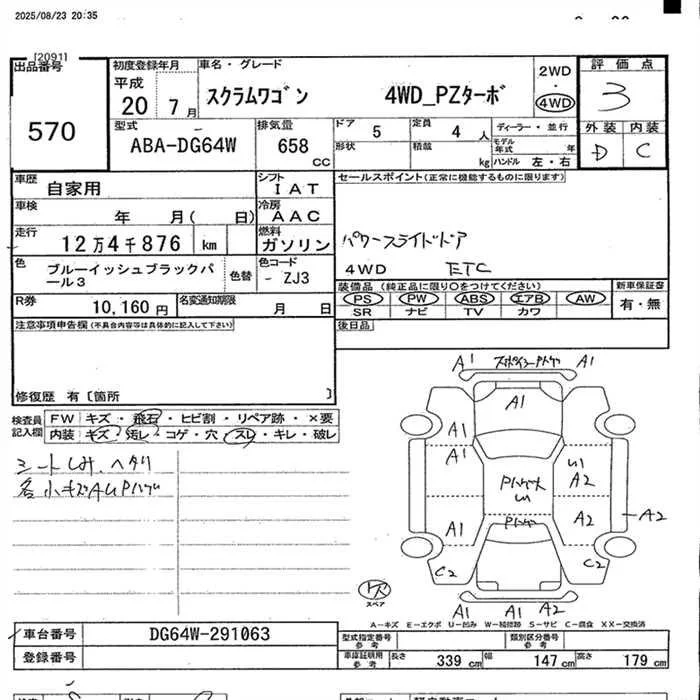 2025/08/23 20:35
[2091]
出品番号
570
初度登録年月
平成
20 7月
車名・グレード
スクラムワゴン 4WD_PZターボ
2WD
・
4WD
評価点
3
外装 内装
D C
型式
ABA-DG64W
排気量
658
cc
ドア 5
定員 4人
形状
積載 kg
ディーラー・並行
モデル年式 年
ハンドル 左・右
車歴 自家用
シフト IAT
車検 年 月( 日)
冷房 AAC
走行 12万4千876 km
燃料 ガソリン
色 ブルーイッシュブラックパール3
色替
色コード - ZJ3
R券 10,160円
名変通知期限 月 日
セールスポイント(正常に機能するものに限ります)
パワースライドドア
4WD ETC
装備品 (純正品に限り○をつけてください)
PS PW ABS エアB AW
SR ナビ TV カワ
新車保証書
有・無
後日品
注意事項申告欄(不具合内容等は具体的に記入して下さい)
修復歴 有〔箇所 〕
検査員記入欄
FW キズ・飛石・ヒビ割・リペア跡・×要
内装 キズ・汚レ・コゲ・穴・スレ・キレ・破レ
シートしみ、ヘタリ
各小キズAUPハゲ
A1 A1
A1
A1
A1
U1
A2
A1
A2
A2
C2
C2
A1 A1 A2
スペア
A-キズ E-エクボ U-凹み W-補修跡 S-サビ C-腐食 XX-交換済
車台番号 DG64W-291063
登録番号
型式指定番号 参考
類別区分番号 参考
車庫証明用 参考
長さ 339cm 幅 147cm 高さ 179cm